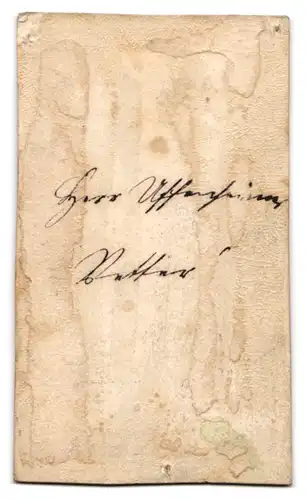 Herr Uffenheimer
Vetter